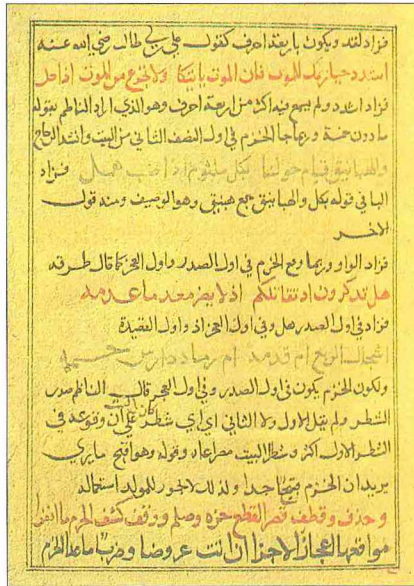 فزاد لقد ويكون باربعة احرف كقول علي بن ابي طالب رضي الله عنه
اشدد حيازيمك للموت فان الموت لاقيكا ولا تجزع من الموت اذا حل
فزاد اشدد ولم يسمع فيه اكثر من اربعة احرف وهو الذي اراد الناظم بقوله
مادون خمسة وربما جا الخزم في اول النصف الثاني من البيت وانشد الزجاج
بكل فزاد
البا في قوله بكل والهبانيق جمع هبنيق وهو الوصيف ومنه قول
الاخر
فزاد الواو وربما وقع الخزم في اول الصدر واول العجز كما قال طرفه
هل تذكرون اذ نقاتلكم اذ لا يضر معدما عدمه
فزاد في اول الصدر هل وفي اول العجز اذ واول القصيدة
اشجاك الربع ام قدمه ام رماد دارس حممه
ولكون الخزم يكون في اول الصدر وفي اول العجز قال الناظم صدر
الشطر ولم يقل الاول ولا الثاني اي اي شطر كان علي ان وقوعه في
الشطر الاول اكثر وشطر البيت مصراعاه وقوله وهو اقبح ما يري
يريد ان الخزم قبيح جدا ولذلك لا يجوز للمولد استعماله
وحذف وقطف قصر القطع حذه وصلم ووقف كشف الخرم ما انفرا
مواقعها اعجاز الاجزا ان اتت عروضا وضربا ما عدا الخرم